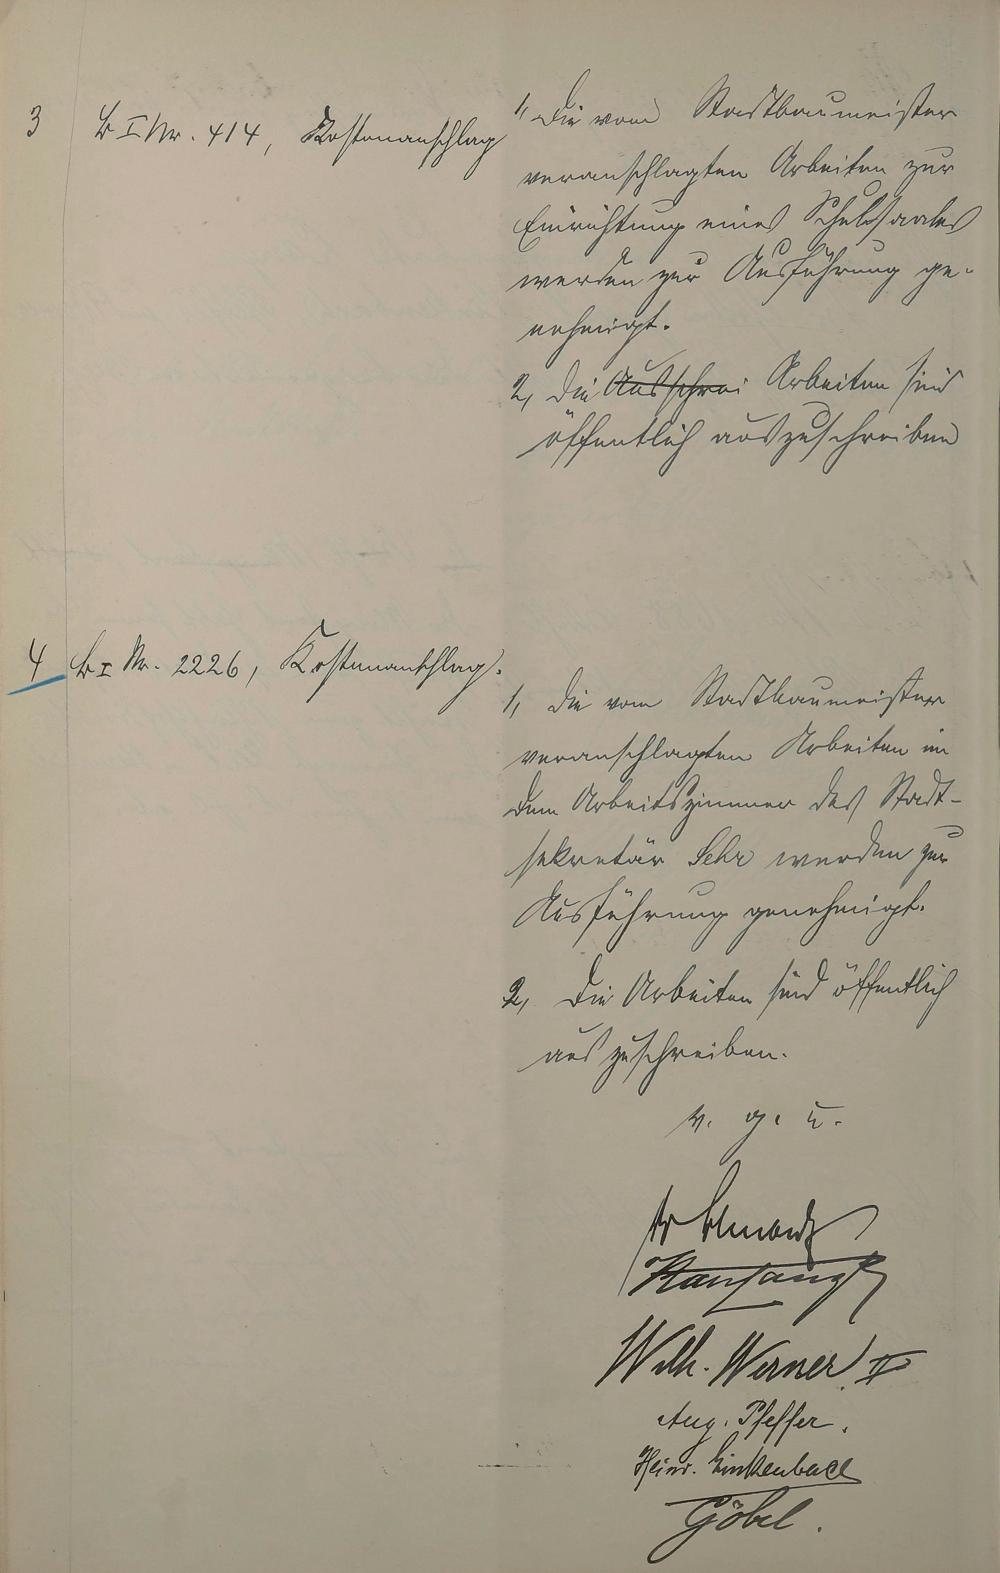 3 B I Nr. 414, Kostenanschlag
1, Die vom Stadtbaumeister
veranschlagten Arbeiten zur
Einrichtung eines Schulsaales
werden zur Ausführung ge-
nehmigt.
2, Die Ausschrei Arbeiten sind
öffentlich auszuschreiben
4 B I Nr. 2226, Kostenanschlag.
1, Die vom Stadtbaumeister
veranschlagten Arbeiten in
dem Arbeitszimmer des Stadt-
sekretär Sehr werden zur
Ausführung genehmigt.
2, Die Arbeiten sind öffentlich
auszuschreiben.
v. g. u.
Wilh. Werner II
Aug. Pfeffer.
Heinr. Linkenbach
Göbel.